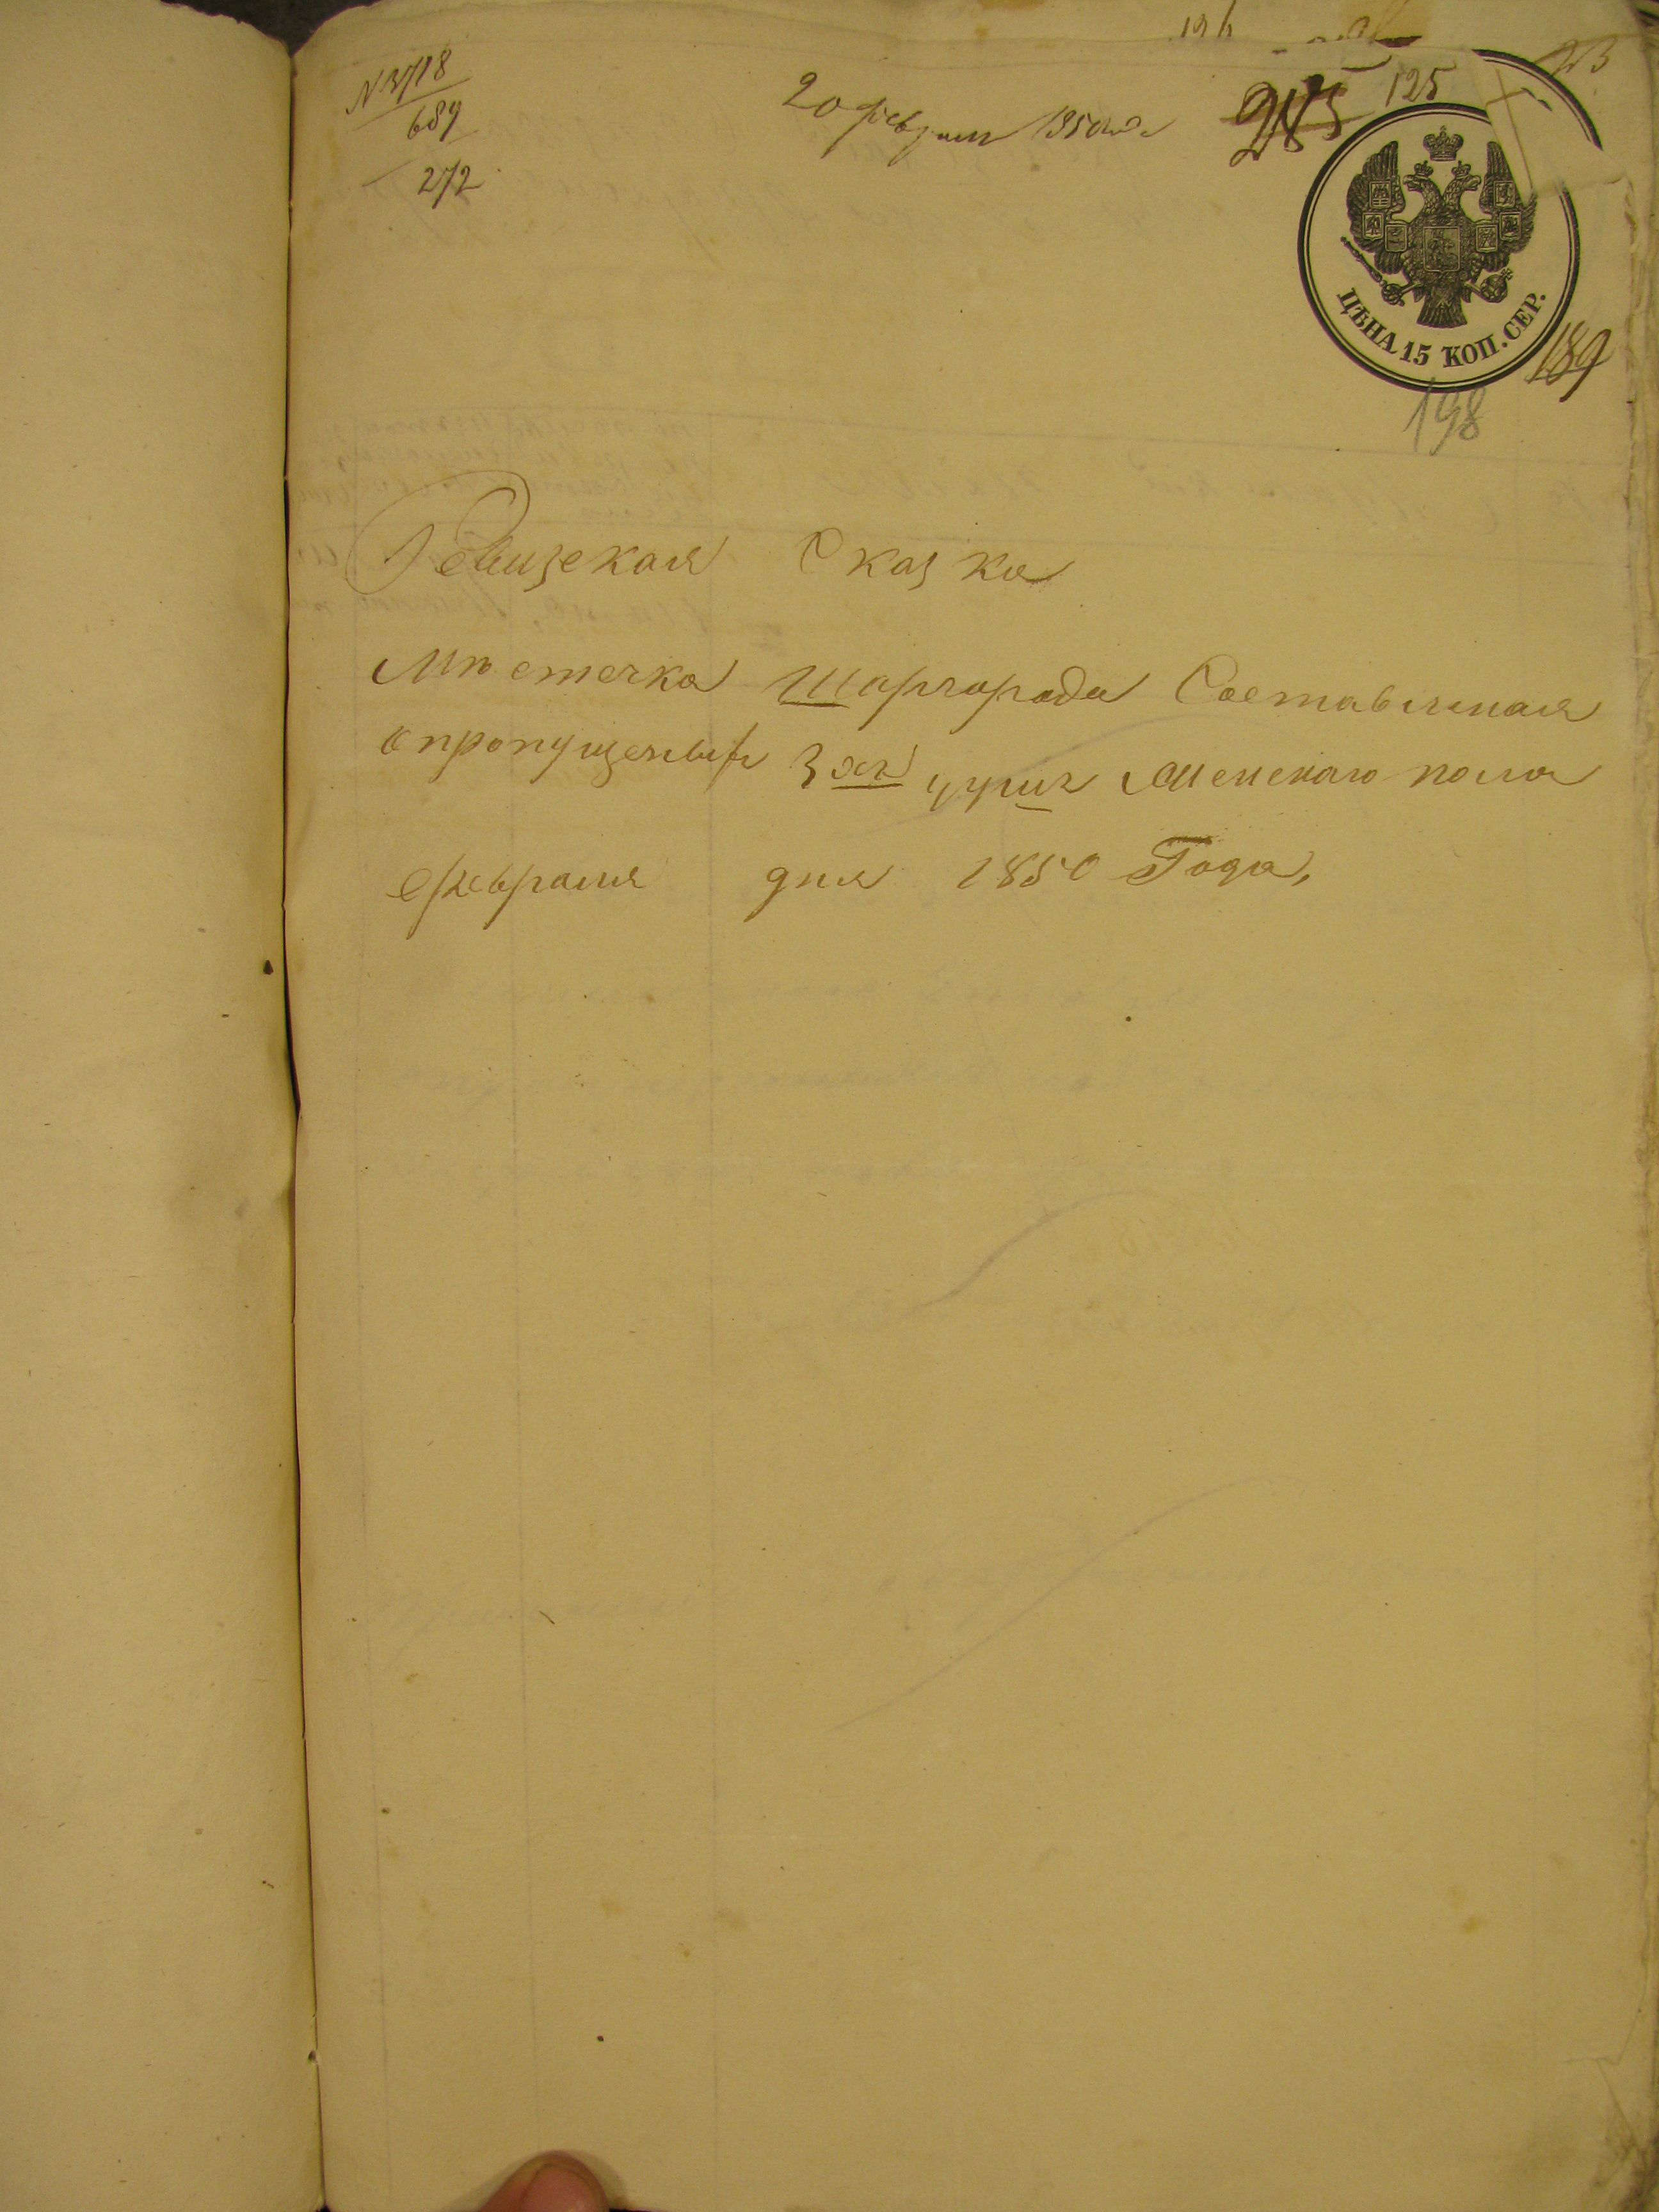 № 3718
689
272
20 февраля 1850 года
125
ЦѢНА 15 КОП. СЕР.
189
198
Ревизская Сказка
Мѣстечка Шаргорода Составленная
о пропущенныхъ 3хъ душъ Женскаго пола
Февраля дня 1850 Года,